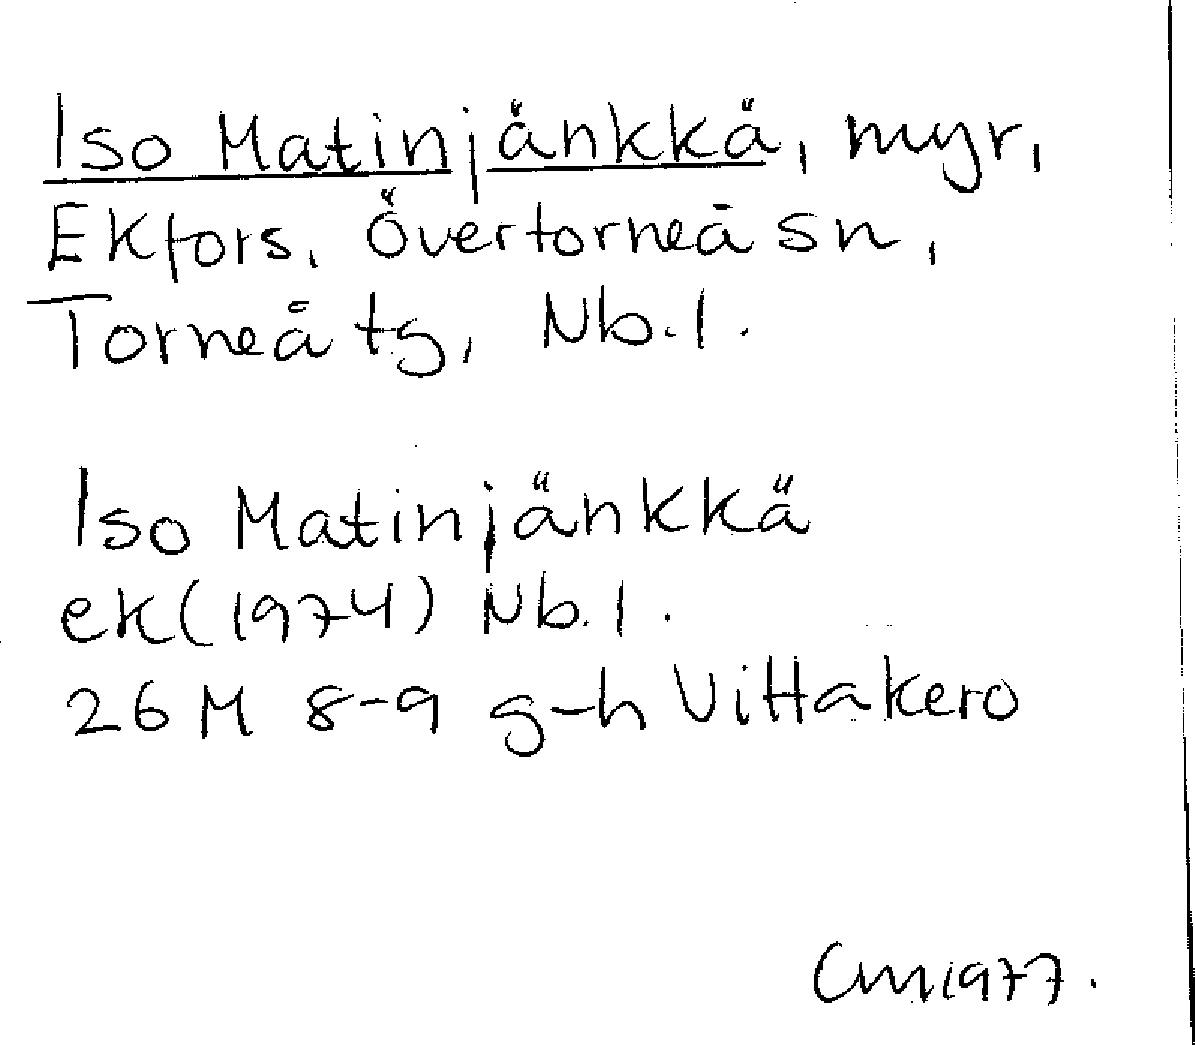 Iso Matinjänkkä, myr,
Ekfors, Övertorneå sn,
Torneå tg, Nb.l.
Iso Matinjänkkä
ek(1974) Nb.l.
26 M 8-9 g-h Vittakero
CM1977.